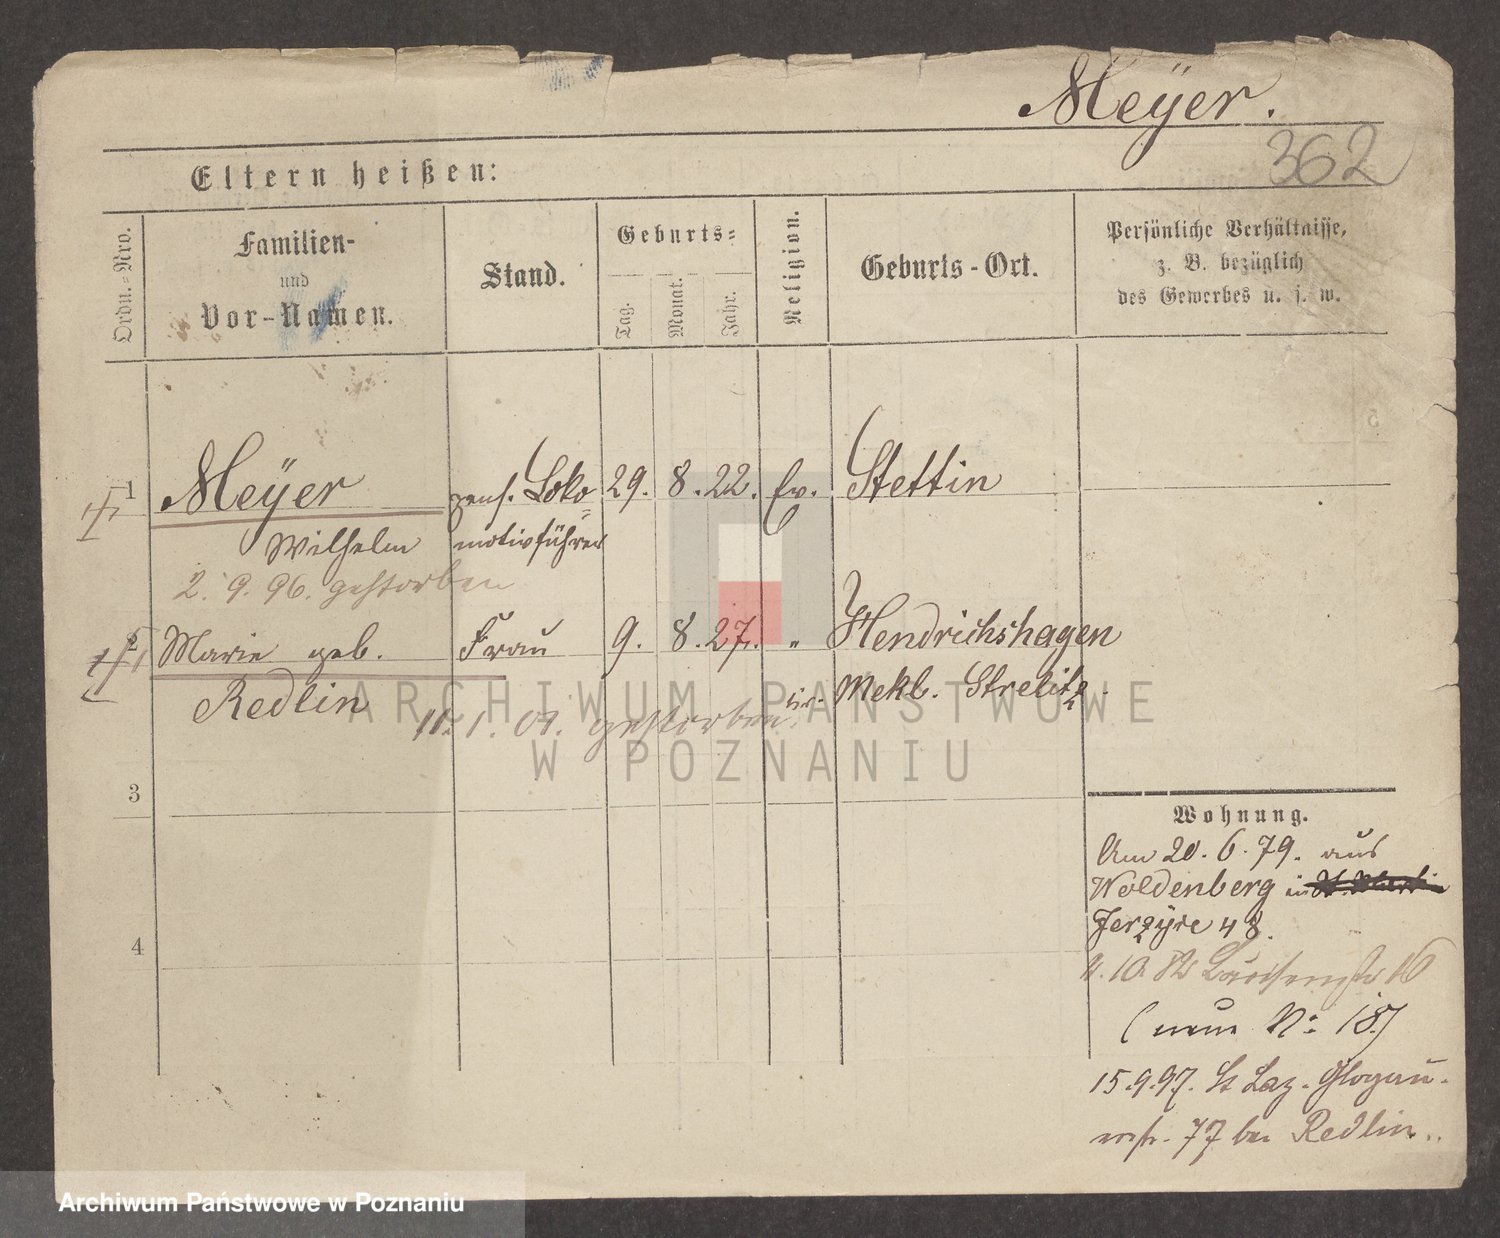 Meÿer.
362
Eltern heißen:
Ordn.-Nro.
Familien-
und
Vor-Namen.
Stand.
Geburts-
Tag.
Monat.
Jahr.
Religion.
Geburts-Ort.
Persönliche Verhältnisse,
z. B. bezüglich
des Gewerbes u. s. w.
1 Meÿer pens. Loko= 29. 8. 22. Ev. Stettin
Wilhelm motivführer
2. 9. 96. gestorben
2 Marie geb. Frau 9. 8. 27. " Hendrichshagen
Redlin Mekl. Strelitz.
11. 1. 01. gestorben.
3
4
Wohnung.
Am 20. 6. 79. aus
Woldenberg in
Jerzyce 48.
4. 10. 82 Louisenstr 16
(neue No: 18)
15.9.97. St Laz. Glogau-
erstr. 77 bei Redlin..
ARCHIWUM PAŃSTWOWE
W POZNANIU
Archiwum Państwowe w Poznaniu